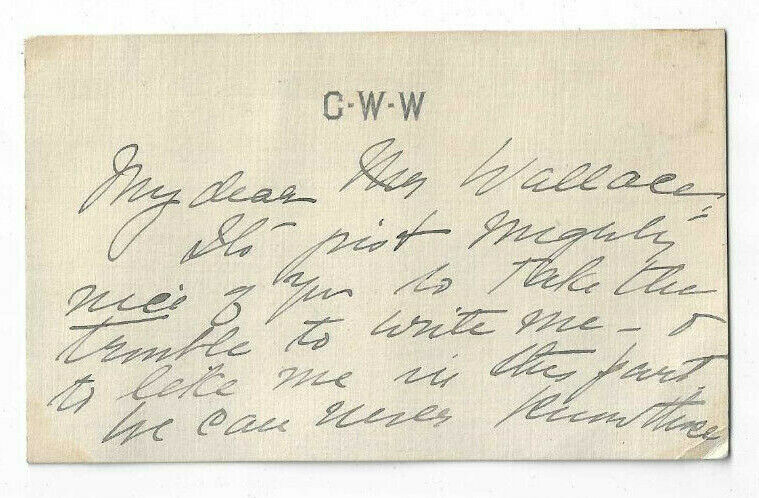 C·W·W
My dear Mrs Wallace:
It's just mighty
nice of you to take the
trouble to write me - &
to like me in this part.
We can never know these